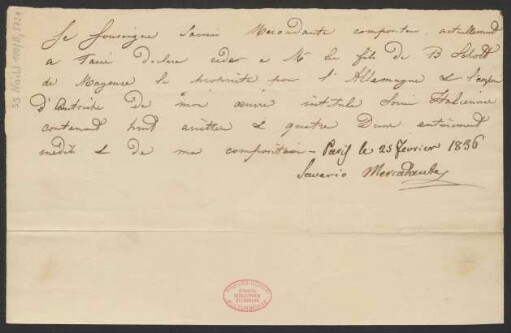 Je Soussigne Saverio Mercadante compositeur actuellement
a Paris declare ceder a M les fils de B Schott
de Mayence la proprieté pour l'Allemagne & l'empire
D'Autriche de mon œuvre intitulé Soirée Italienne
contenant huit ariettes & quatre Duos entierement
inedits & de ma composition – Paris le 25 février 1836
Saverio Mercadante